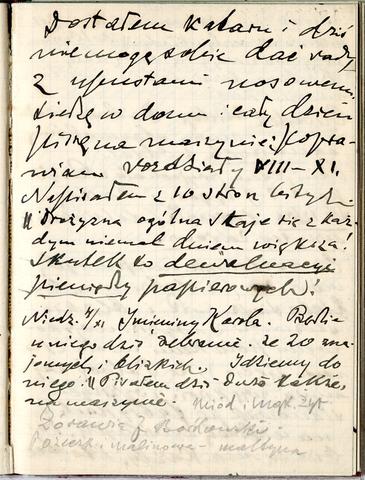 Dostałem kataru i dziś
nie mogę sobie dać rady
z upustami nosowemi.
Siedzę w domu i cały dzień
piszę na maszynie: / popra-
wiam rozdziały VIII – XI.
Napisałem z 10 stron
" Drożyzna ogólna staje się z każ-
dym niemal dniem większa!
Skutek to dewaluacji
pieniędzy papierowych!
Niedz. 4/XI Imieniny Karola. Będzie
u niego dziś zebranie ze 20 zna-
jomych i bliskich. Idziemy do
niego. " Pisałem dziś dużo także
na maszynie. miód i mąk. żyt
Żórawia 7
i malinowe – maltyna